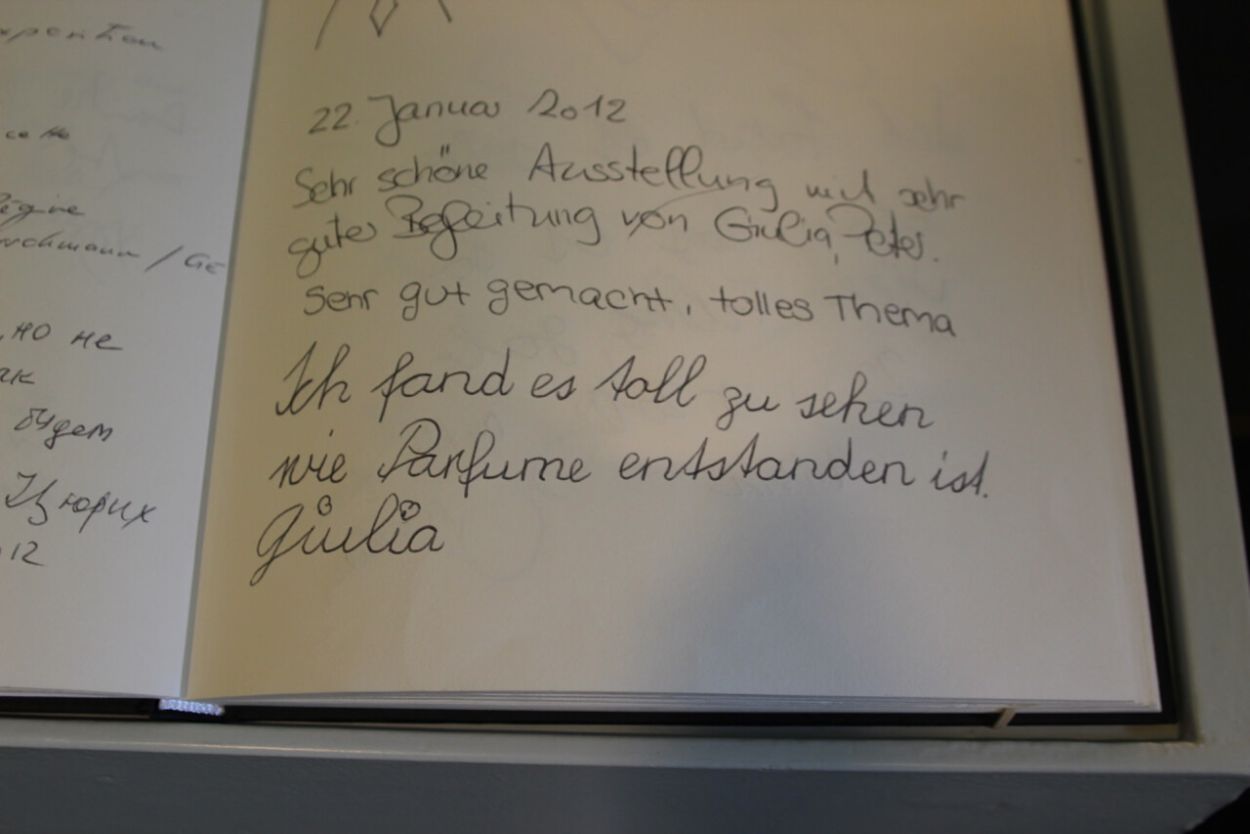 xposition
ce
égine
chmann / GE
, но не
ак
будем
Цюрих
12
22. Januar 2012
Sehr schöne Ausstellung mit sehr
gute Begleitung von Giulia, Peter.
Sehr gut gemacht, tolles Thema
Ich fand es toll zu sehen
wie Parfume entstanden ist.
Giulia